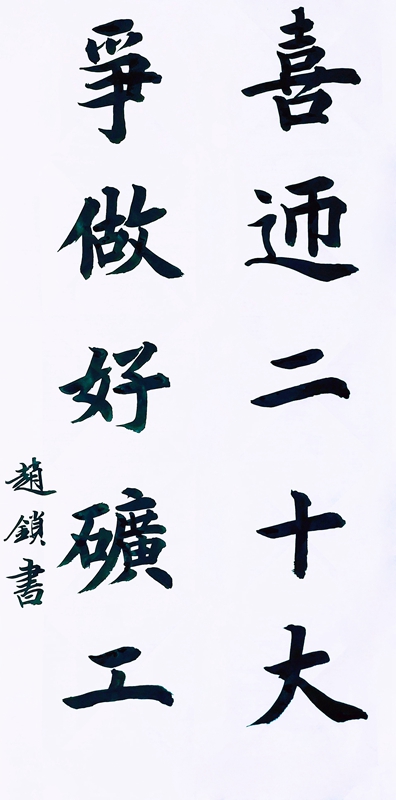 喜迊二十大
爭做好礦工
趙鎖書